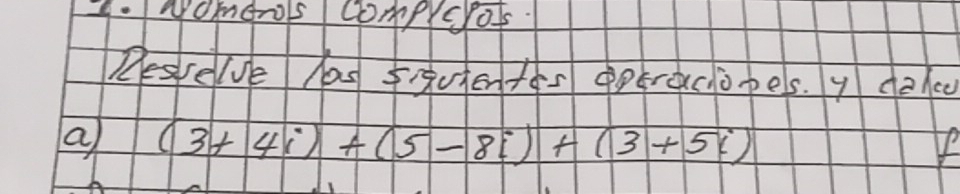 Números Complejos.
Resuelve las siguientes operaciones. y calcu
a) (3+4i) + (5-8i) + (3+5i) f